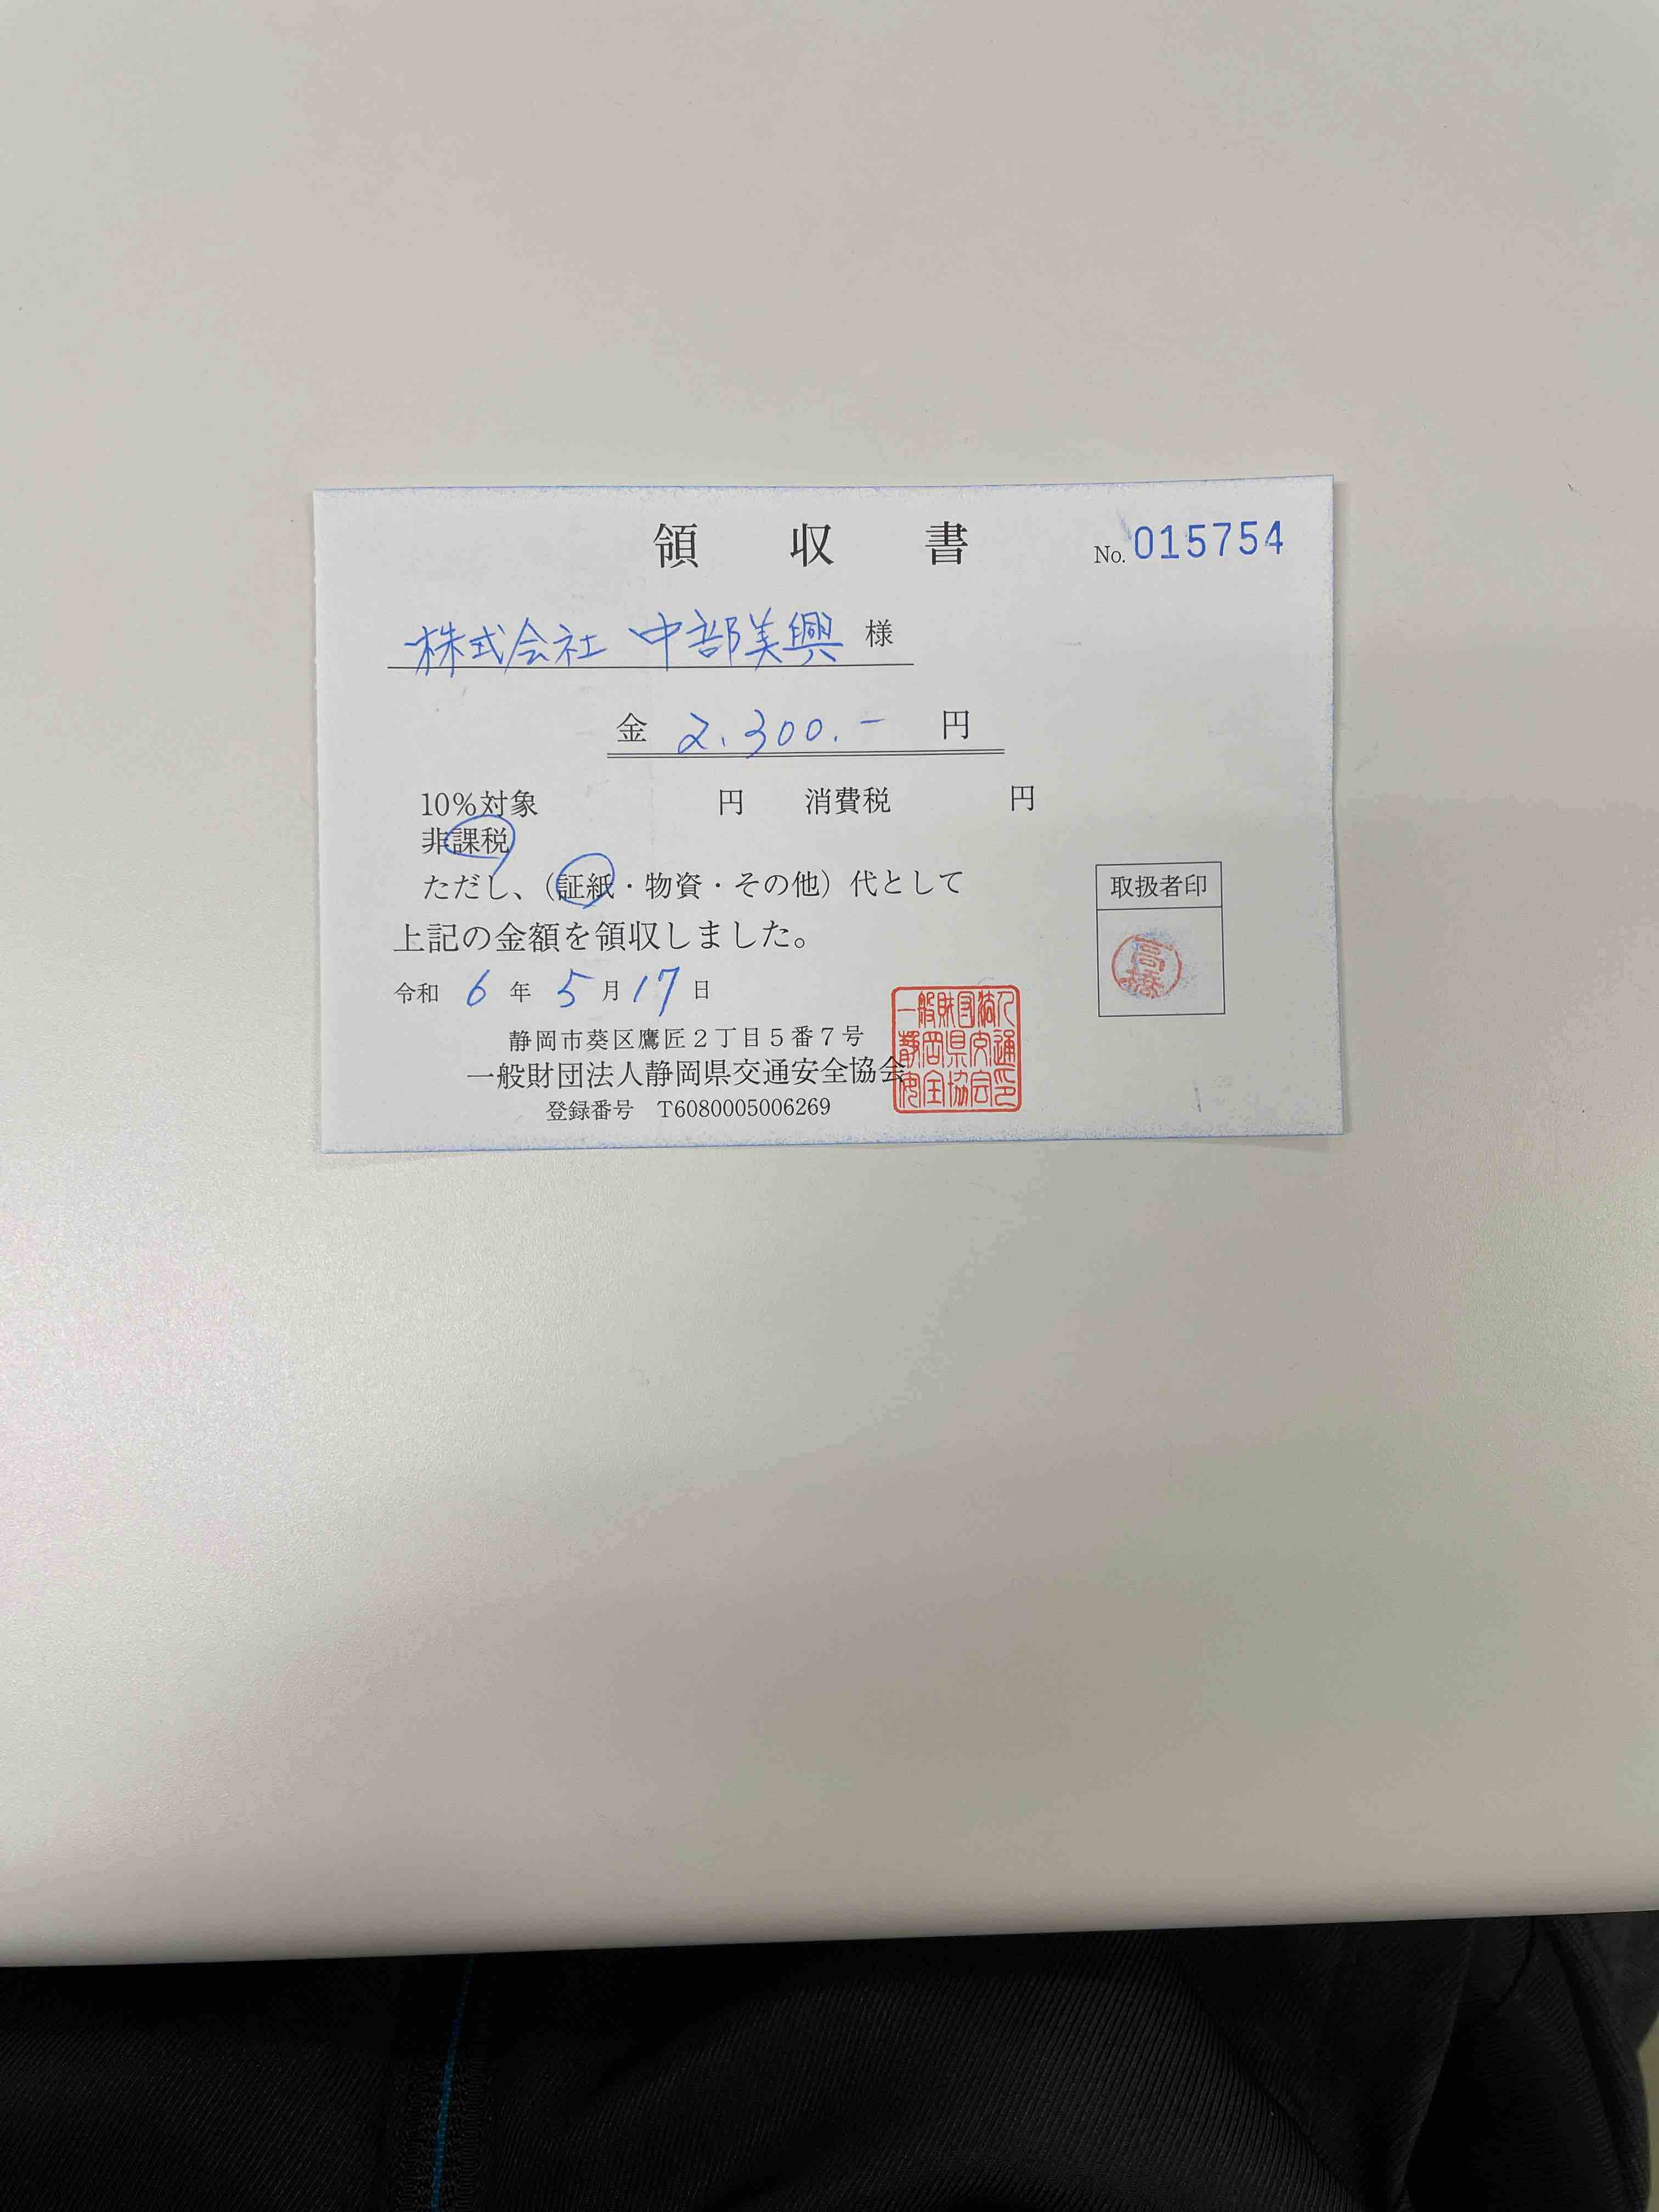 領収書 No.015754
株式会社 中部美興 様
金 2,300.- 円
10%対象 円 消費税 円
非課税
ただし、(証紙・物資・その他)代として
取扱者印
上記の金額を領収しました。
高橋
令和 6 年 5 月 17 日
静岡市葵区鷹匠2丁目5番7号
一般財団法人静岡県交通安全協会
登録番号 T6080005006269
一般財団法人
静岡県交通
安全協会印